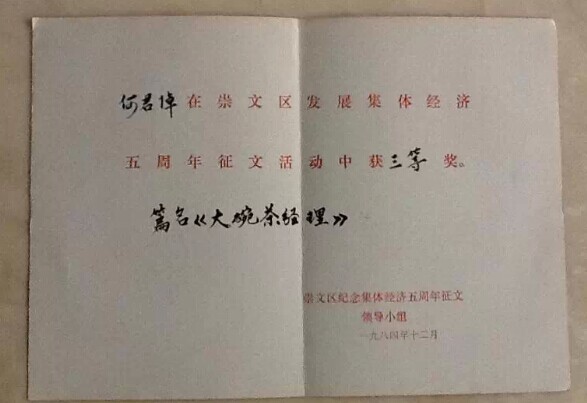 何君倬在崇文区发展集体经济
五周年征文活动中获三等奖。
篇名《大碗茶经理》
崇文区纪念集体经济五周年征文
领导小组
一九八四年十二月